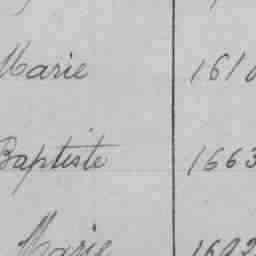 Marie 1610
Baptiste 1663
Marie 1692